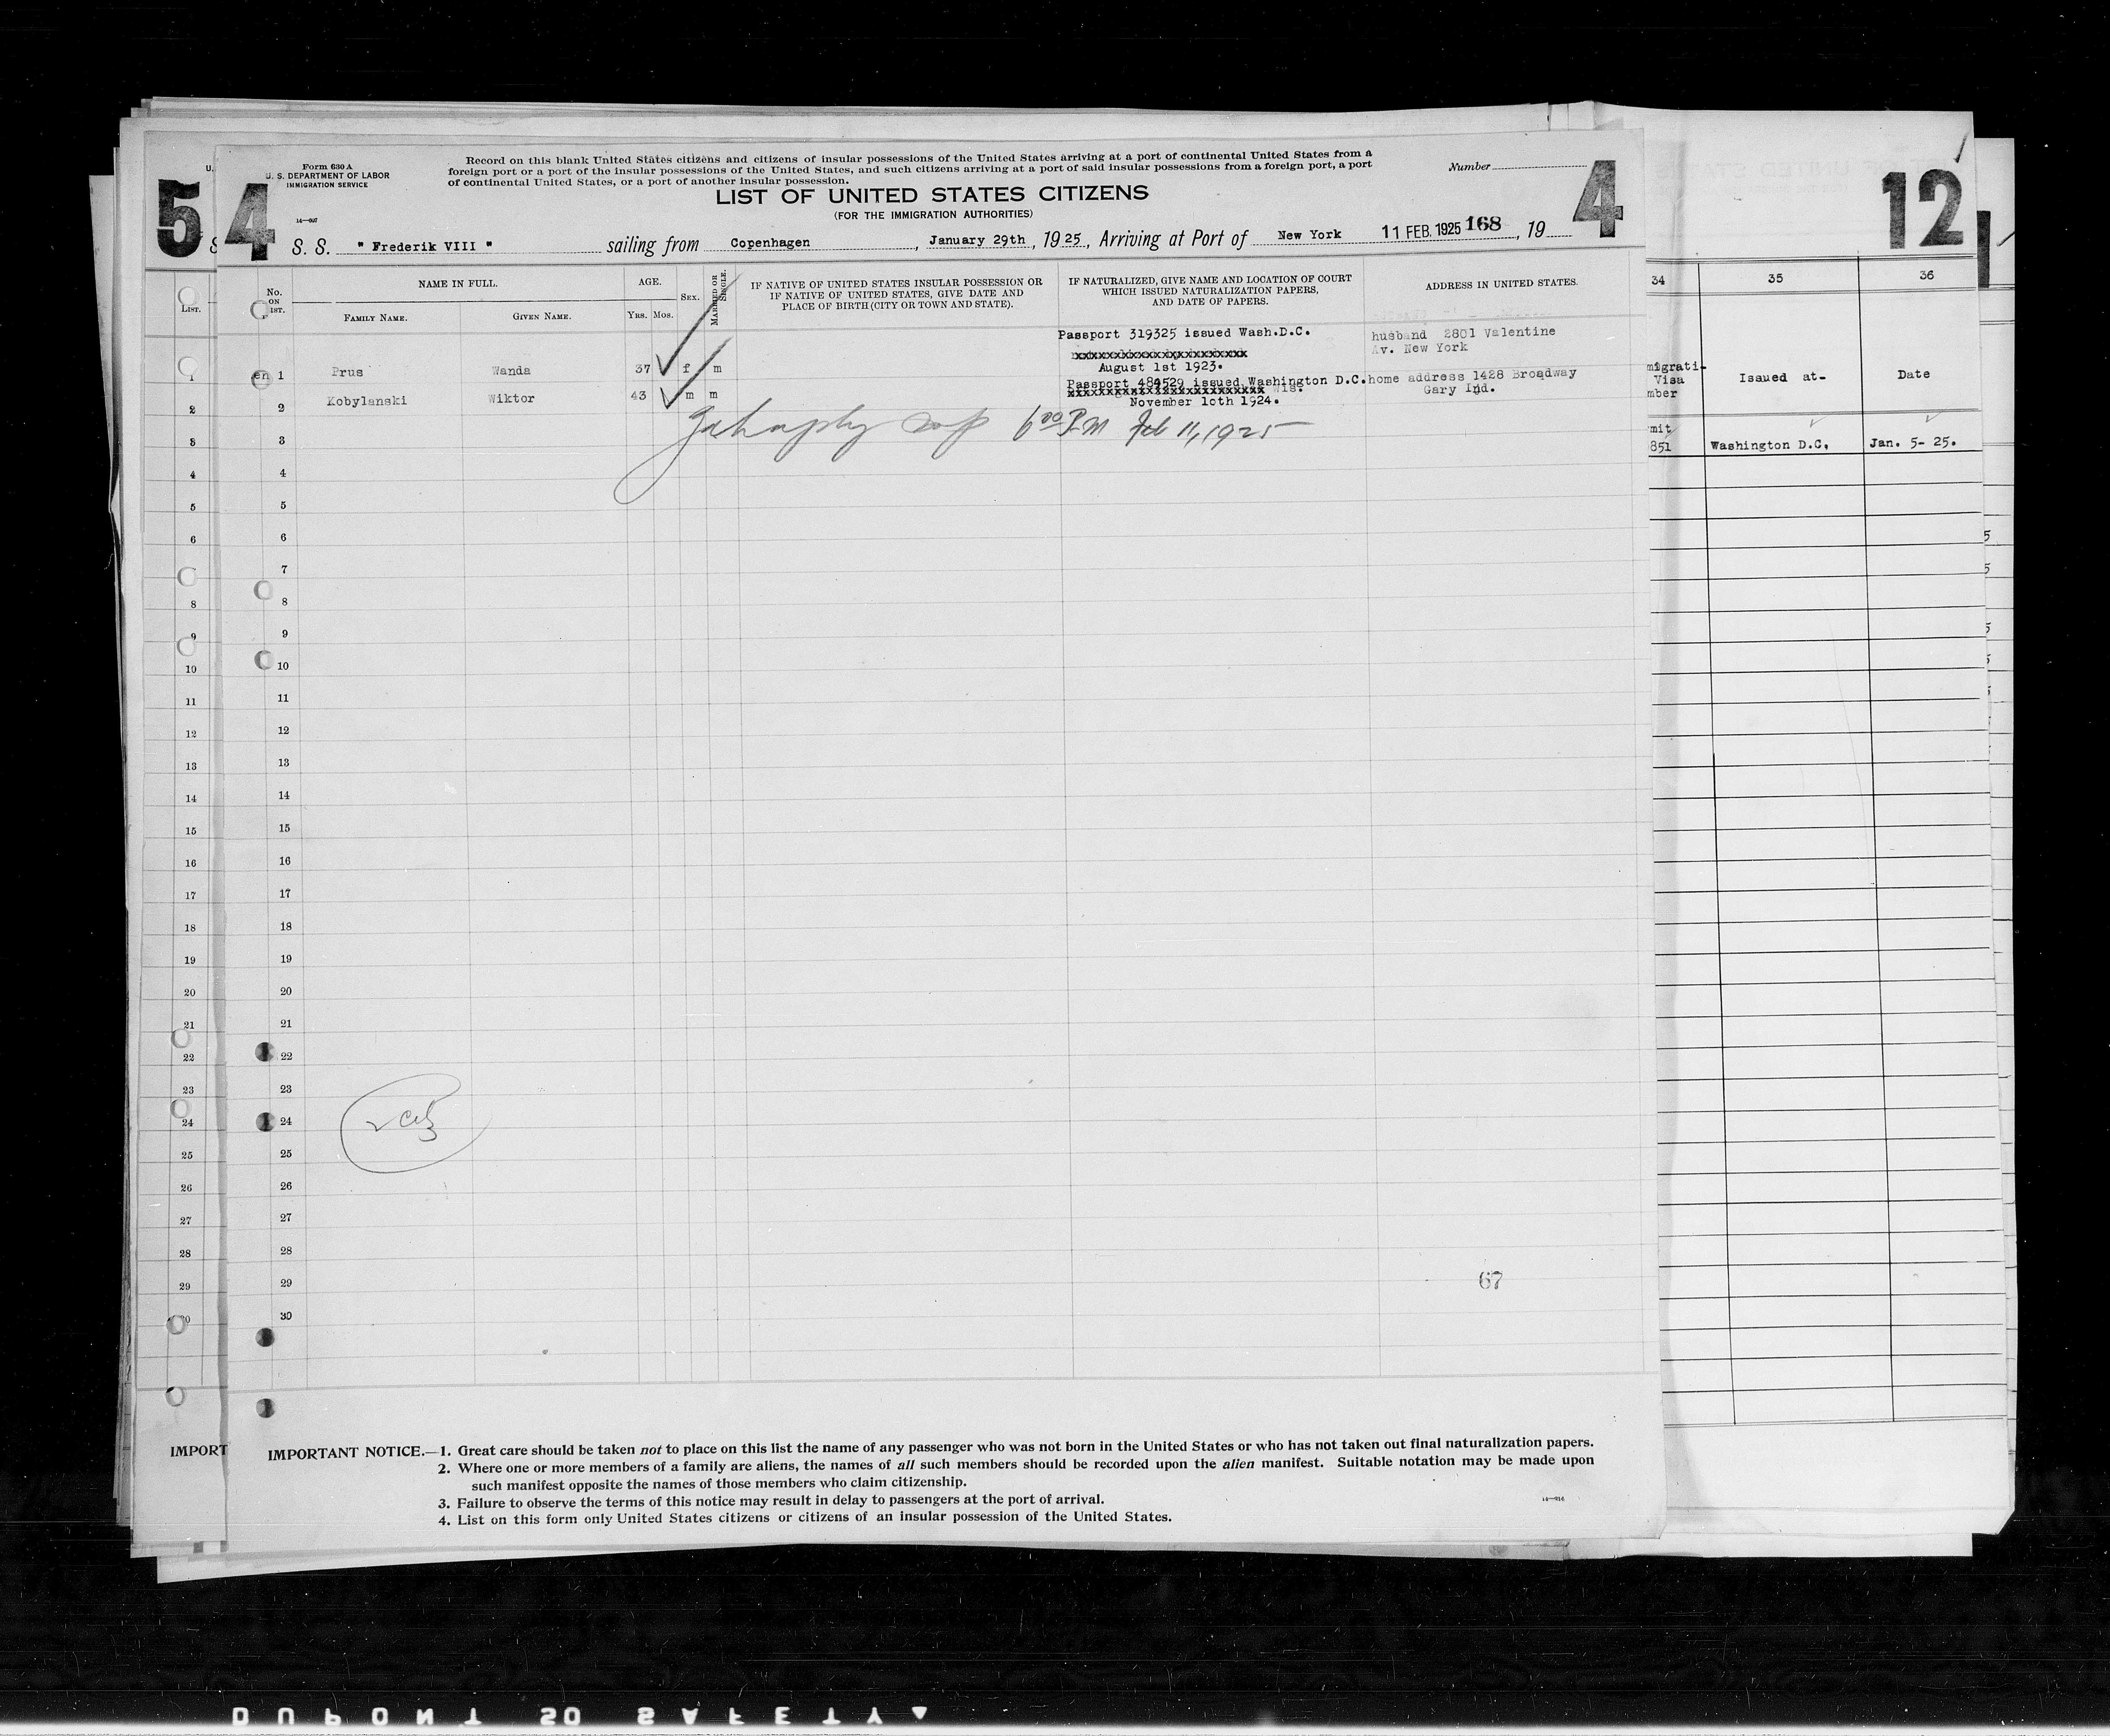 Form 630 A
U. S. DEPARTMENT OF LABOR
IMMIGRATION SERVICE
14—607
Record on this blank United States citizens and citizens of insular possessions of the United States arriving at a port of continental United States from a
foreign port or a port of the insular possessions of the United States, and such citizens arriving at a port of said insular possessions from a foreign port, a port
of continental United States, or a port of another insular possession.
Number
5 4 4 12
LIST OF UNITED STATES CITIZENS
(FOR THE IMMIGRATION AUTHORITIES)
S. S. " Frederik VIII " sailing from Copenhagen, January 29th, 1925, Arriving at Port of New York 11 FEB. 1925 168, 19
No. ON LIST.
NAME IN FULL.
FAMILY NAME. GIVEN NAME.
AGE.
YRS. MOS.
SEX.
MARRIED OR SINGLE.
IF NATIVE OF UNITED STATES INSULAR POSSESSION OR
IF NATIVE OF UNITED STATES, GIVE DATE AND
PLACE OF BIRTH (CITY OR TOWN AND STATE).
IF NATURALIZED, GIVE NAME AND LOCATION OF COURT
WHICH ISSUED NATURALIZATION PAPERS,
AND DATE OF PAPERS.
ADDRESS IN UNITED STATES.
Passport 319325 issued Wash.D.C. husband 2801 Valentine
xxxxxxxxxxxxxxxxxxxxxxxxx Av. New York
1 Prus Wanda 37 f m August 1st 1923.
Passport 484529 issued Washington D.C. home address 1428 Broadway
2 Kobylanski Wiktor 43 m m Wis. Gary Ind.
November 10th 1924.
3 PM Feb 11, 1925
4
5
6
7
8
9
10
11
12
13
14
15
16
17
18
19
20
21
22
23
24
25
26
27
28
29 67
30
IMPORTANT NOTICE.—1. Great care should be taken not to place on this list the name of any passenger who was not born in the United States or who has not taken out final naturalization papers.
2. Where one or more members of a family are aliens, the names of all such members should be recorded upon the alien manifest. Suitable notation may be made upon
such manifest opposite the names of those members who claim citizenship.
3. Failure to observe the terms of this notice may result in delay to passengers at the port of arrival.
4. List on this form only United States citizens or citizens of an insular possession of the United States.
LIST.
1
2
3
4
5
6
8
9
10
11
12
13
14
15
16
17
18
19
20
21
22
23
24
25
26
27
28
29
IMPORT
34 35 36
migrati-
Visa Issued at- Date
mber
mit
851 Washington D.C. Jan. 5- 25.
DUPONT SO SAFETY